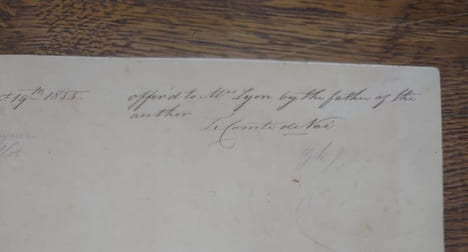 19th 1855. offer'd to Mrs Lyon by the father of the
author
Le Comte de